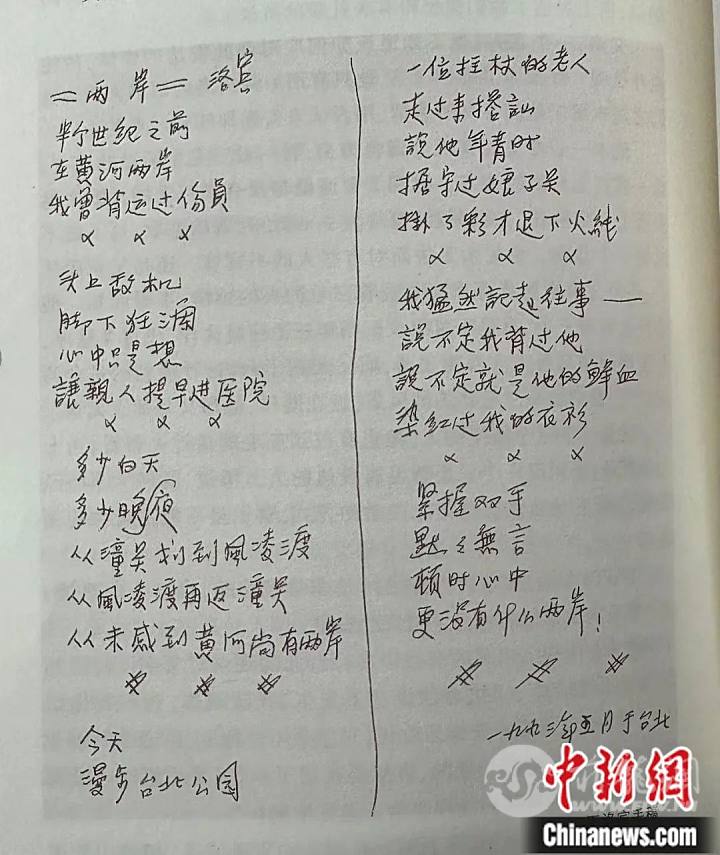 =两岸= 洛宾
半个世纪之前
在黄河两岸
我曾背运过伤員
× × ×
头上敌机
脚下狂澜
心中只是想
讓親人提早进医院
× × ×
多少白天
多少晚夜
从潼关划到風凌渡
从風凌渡再返潼关
从未感到黄河尚有两岸
今天
漫步台北公园
一位拄杖的老人
走过来搭訕
說他年青时
据守过娘子关
掛了彩才退下火綫
× × ×
我猛然記起往事——
說不定我背过他
說不定就是他的鮮血
染紅过我的衣衫
× × ×
紧握双手
默々無言
頓时心中
更沒有什么两岸!
一九九三年五月于台北
中新網
Chinanews.com